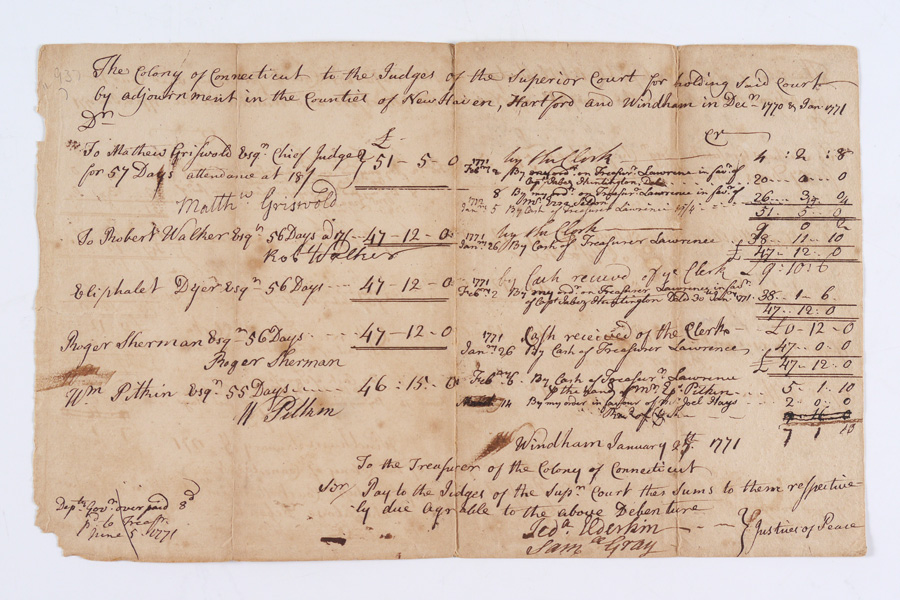 The Colony of Connecticut to the Judges of the Superior Court for holding said Court
by adjournment in the Counties of New Haven, Hartford and Windham in Decr 1770 & Jan 1771
Dr
Cr
£
To Mathew Griswold Esqr Chief Judge
for 57 Days attendance at 18/ 51-5-0
Matthw Griswold
To Robert Walker Esqr 56 Days a 17/ 47-12-0
Rob Walker
Eliphalet Dyer Esqr 56 Days 47-12-0
Roger Sherman Esqr 56 Days 47-12-0
Roger Sherman
Wm Pitkin Esqr 55 Days 46:15-0
W Pitkin
by the Clerk 4:2:8
1771 Febr 2 By my ordr on Treasurr Lawrence in favr of
Capt Jabez Huntington 20-0-0
8 By my ordr on Treasurr Lawrence in favr of
26
5 By Cash of Treasurer Lawrence
51 5 0
by the Clerk 9 0 2
1771 Janry 26 By Cash of Treasurer Lawrence 38-11-10
£ 47-12-0
by Cash received of ye Clerk £9:10:6
1771 Febr 2 By my ordr on Treasurer Lawrence in favr
of Capt Jabez Huntington Dtd 30 Janry 1771 38-1-6
47 12:0
1771 Cash received of the Clerk £0-12-0
Janry 26 By Cash of Treasurer Lawrence 47-0-0
£ 47-12-0
Febr 6 By Cash of Treasurr Lawrence
to the hand of Mr Pitkin 5-1-10
14 By my order in favour of Mr Joel Hays 2-0-0
7 1 10
Windham January 1771
To the Treasurer of the Colony of Connecticut
Sir Pay to the Judges of the Supr Court the Sums to them respective
ly due Agreable to the above Debenture
Jedh Elderkin
Saml Gray
Justices of Peace
Depty Govr over paid 8d
pr Treasr
June 5 1771